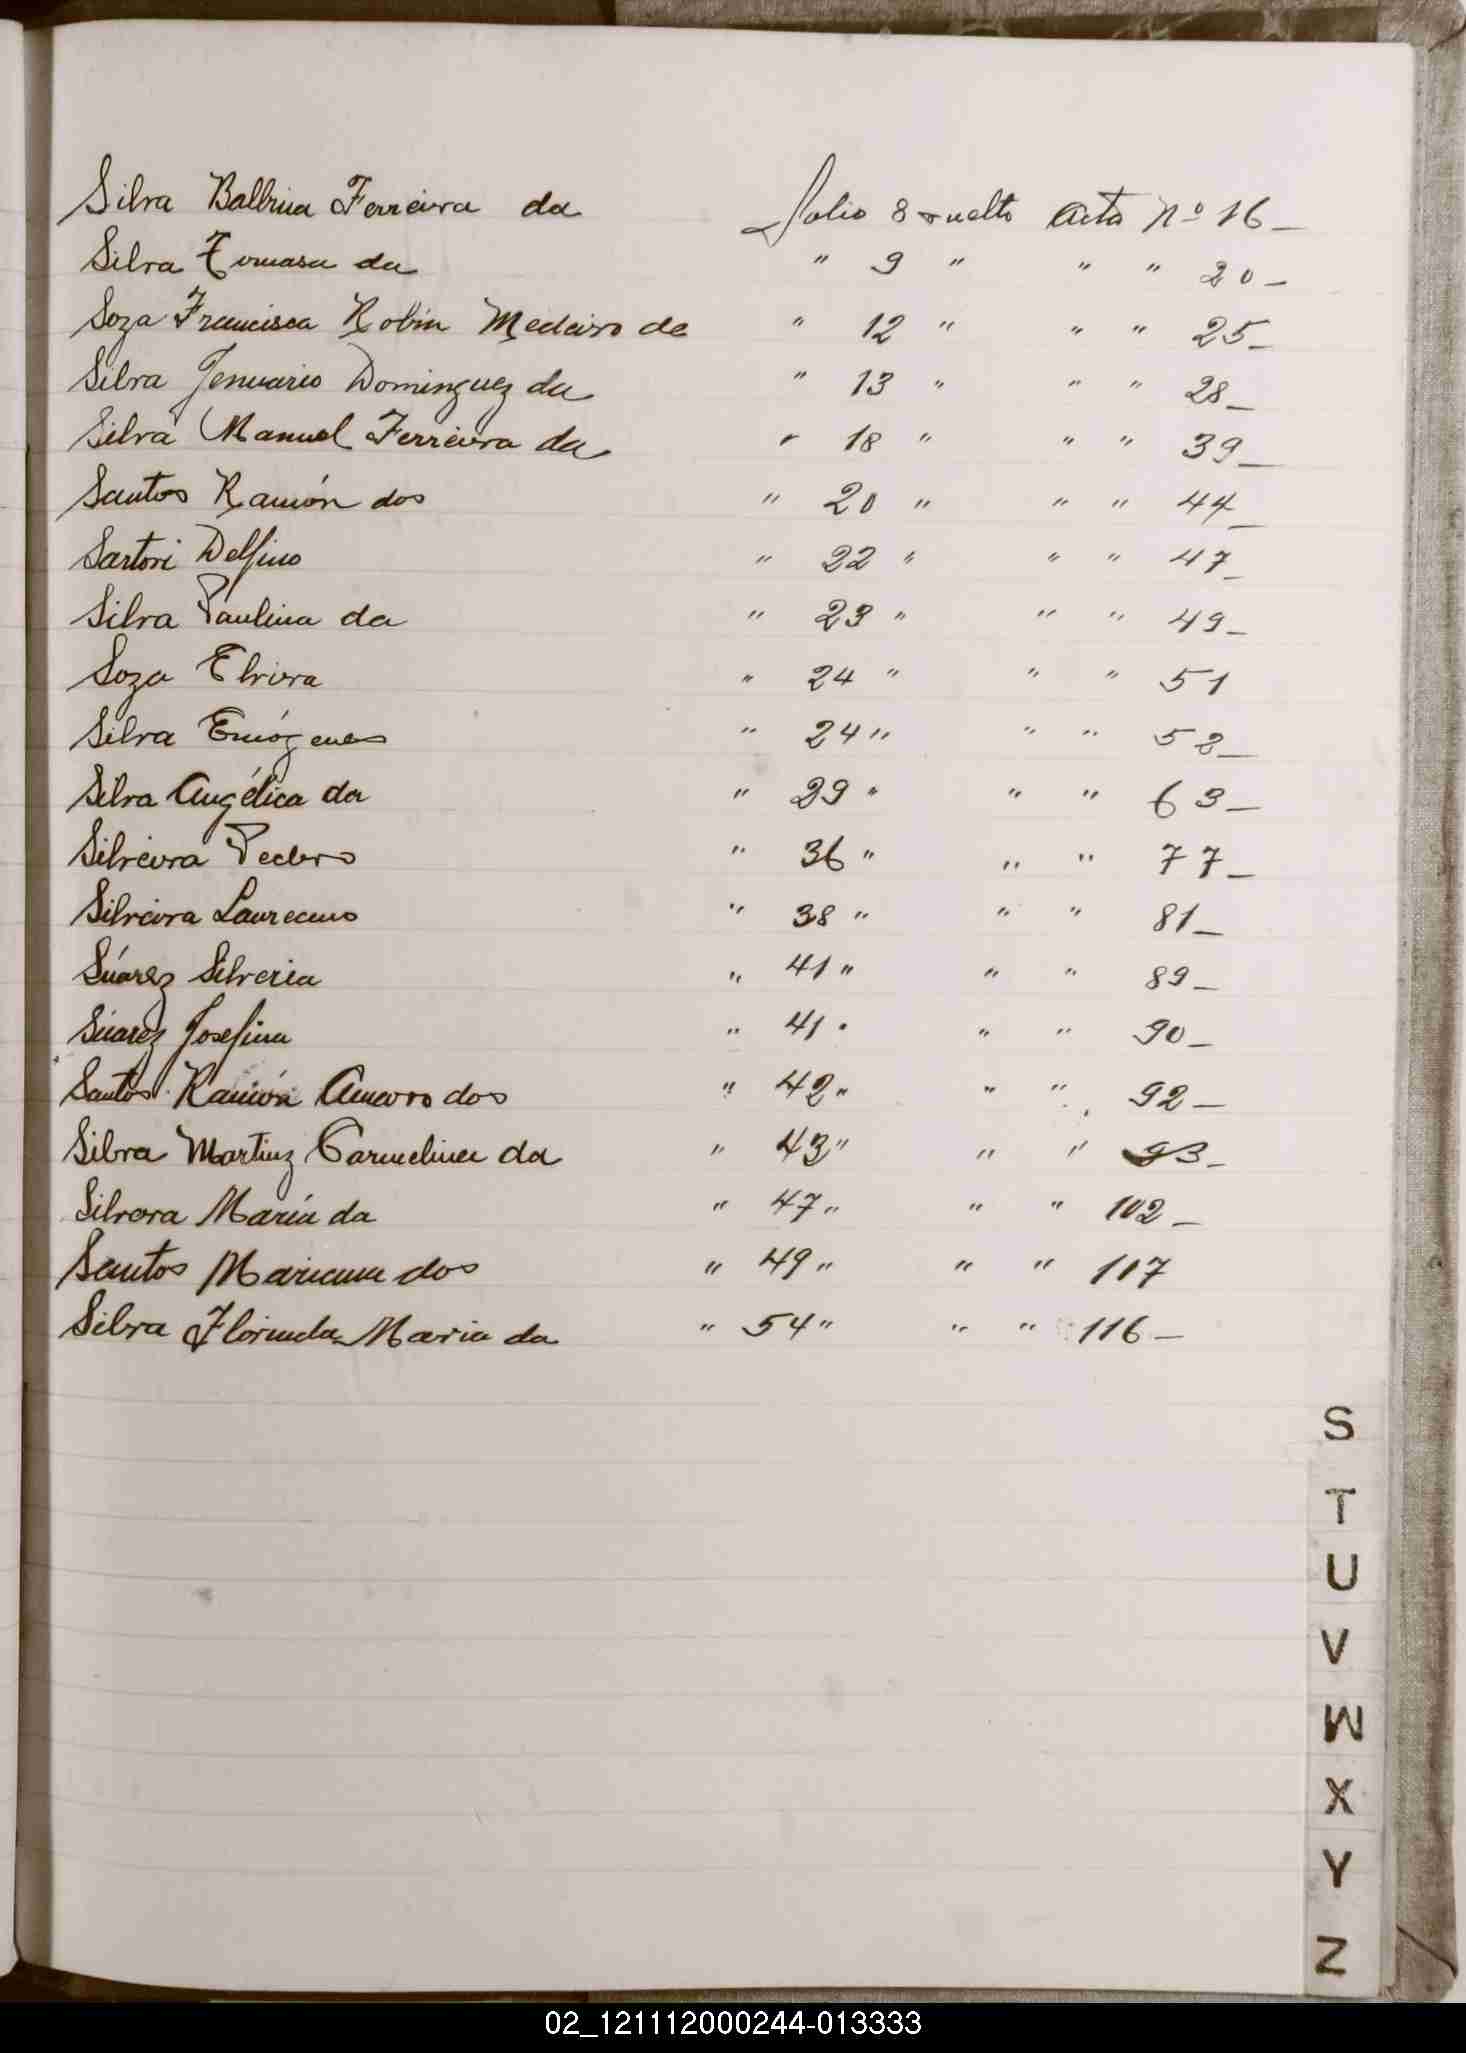 Silva Balbina Ferreira da Folio 8 vuelto Acta Nº 16 —
Silva Tomasa da " 9 " " " 20 —
Soza Francisca Robin Medeiro de " 12 " " " 25 —
Silva Jenuario Dominguez da " 13 " " " 28 —
Silva Manuel Ferreira da " 18 " " " 39 —
Santos Ramón dos " 20 " " " 44 —
Sartori Delfino " 22 " " " 47 —
Silva Paulina da " 23 " " " 49 —
Soza Elvira " 24 " " " 51
Silva Emógenes " 24 " " " 52 —
Silva Angélica da " 29 " " " 63 —
Silveira Pedro " 36 " " " 77 —
Silveira Laureano " 38 " " " 81 —
Súarez Silveria " 41 " " " 89 —
Súarez Josefina " 41 " " " 90 —
Santos Ramón Amaro dos " 42 " " " 92 —
Silva Martinz Carmelina da " 43 " " " 93 —
Silvera María da " 47 " " " 102 —
Santos Mariana dos " 49 " " " 107
Silva Florinda Maria da " 54 " " " 116 —
S
T
U
V
W
X
Y
Z
02_121112000244-013333